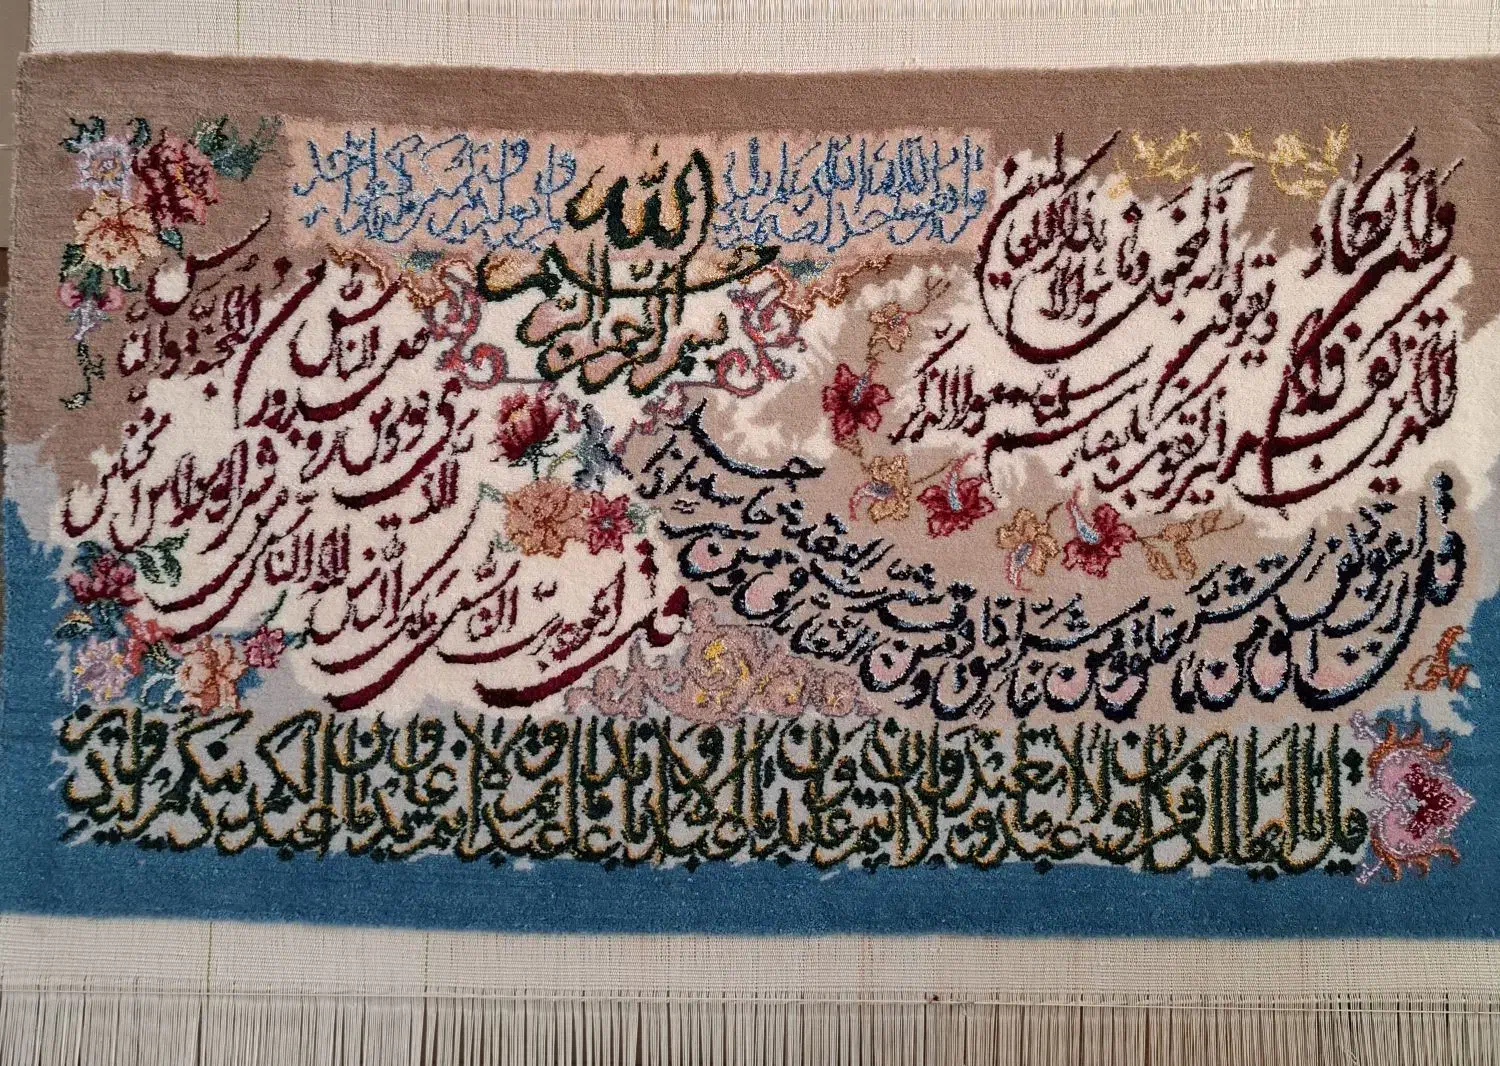 بسم الله الرحمن الرحیم
قل هو الله احد الله الصمد لم یلد و لم یولد و لم یکن له کفوا احد
و ان یکاد الذین کفروا لیزلقونک بابصارهم لما سمعوا الذکر و یقولون انه لمجنون و ما هو الا ذکر للعالمین
قل اعوذ برب الفلق من شر ما خلق و من شر غاسق اذا وقب و من شر النفاثات فی العقد و من شر حاسد اذا حسد
قل اعوذ برب الناس ملک الناس اله الناس من شر الوسواس الخناس الذی یوسوس فی صدور الناس من الجنة و الناس
قل یا ایها الکافرون لا اعبد ما تعبدون و لا انتم عابدون ما اعبد و لا انا عابد ما عبدتم و لا انتم عابدون ما اعبد لکم دینکم ولی دین